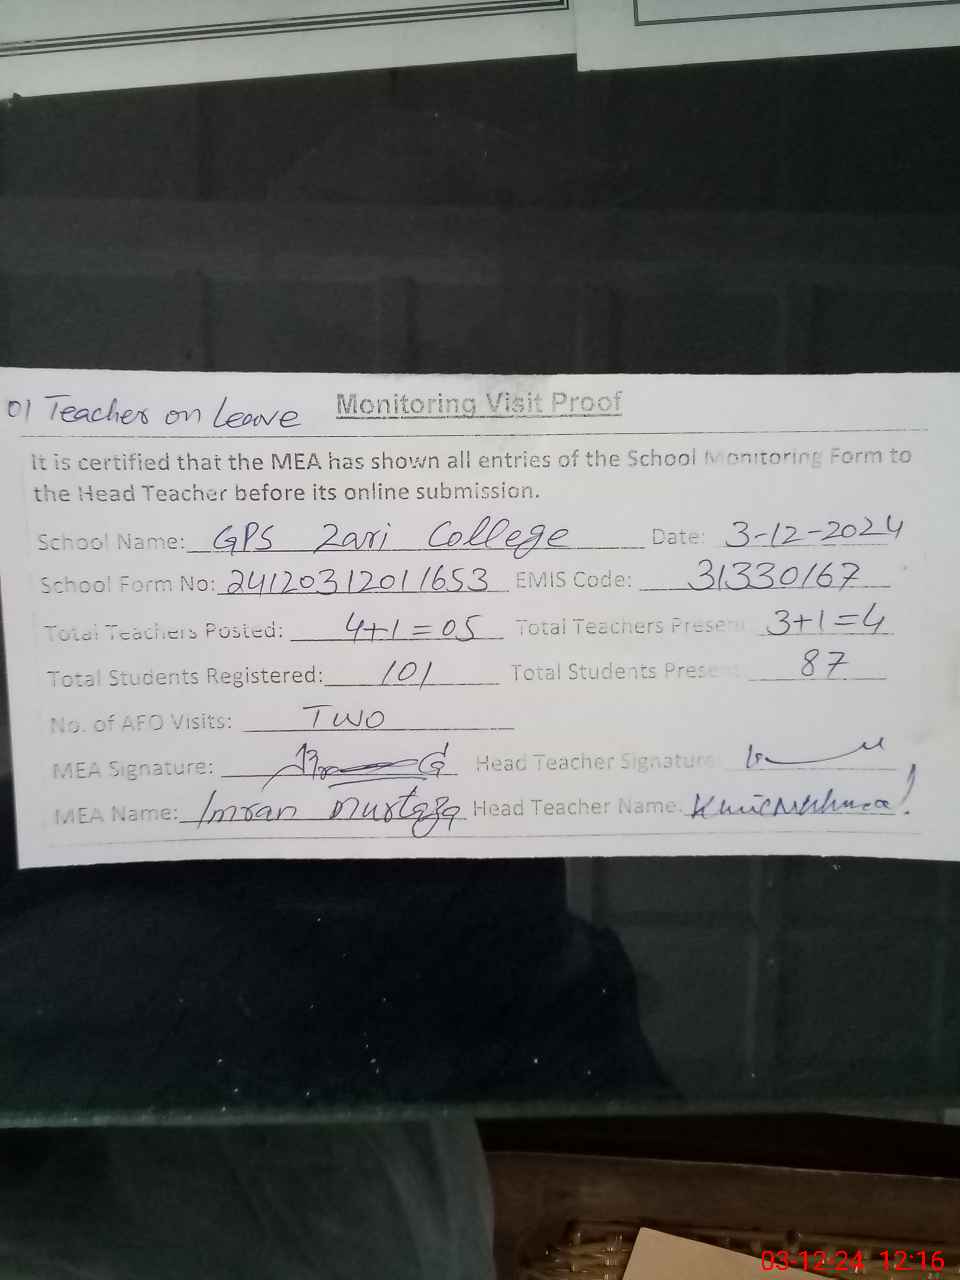 01 Teacher on Leave
Monitoring Visit Proof
It is certified that the MEA has shown all entries of the School Monitoring Form to
the Head Teacher before its online submission.
School Name: GPS Zari College Date: 3-12-2024
School Form No: 24120312011653 EMIS Code: 31330167
Total Teachers Posted: 4+1=05 Total Teachers Present 3+1=4
Total Students Registered: 101 Total Students Present 87
No. of AEO Visits: Two
MEA Signature: Head Teacher Signature:
MEA Name: Imran Murtaza Head Teacher Name:
03-12-24 12:16